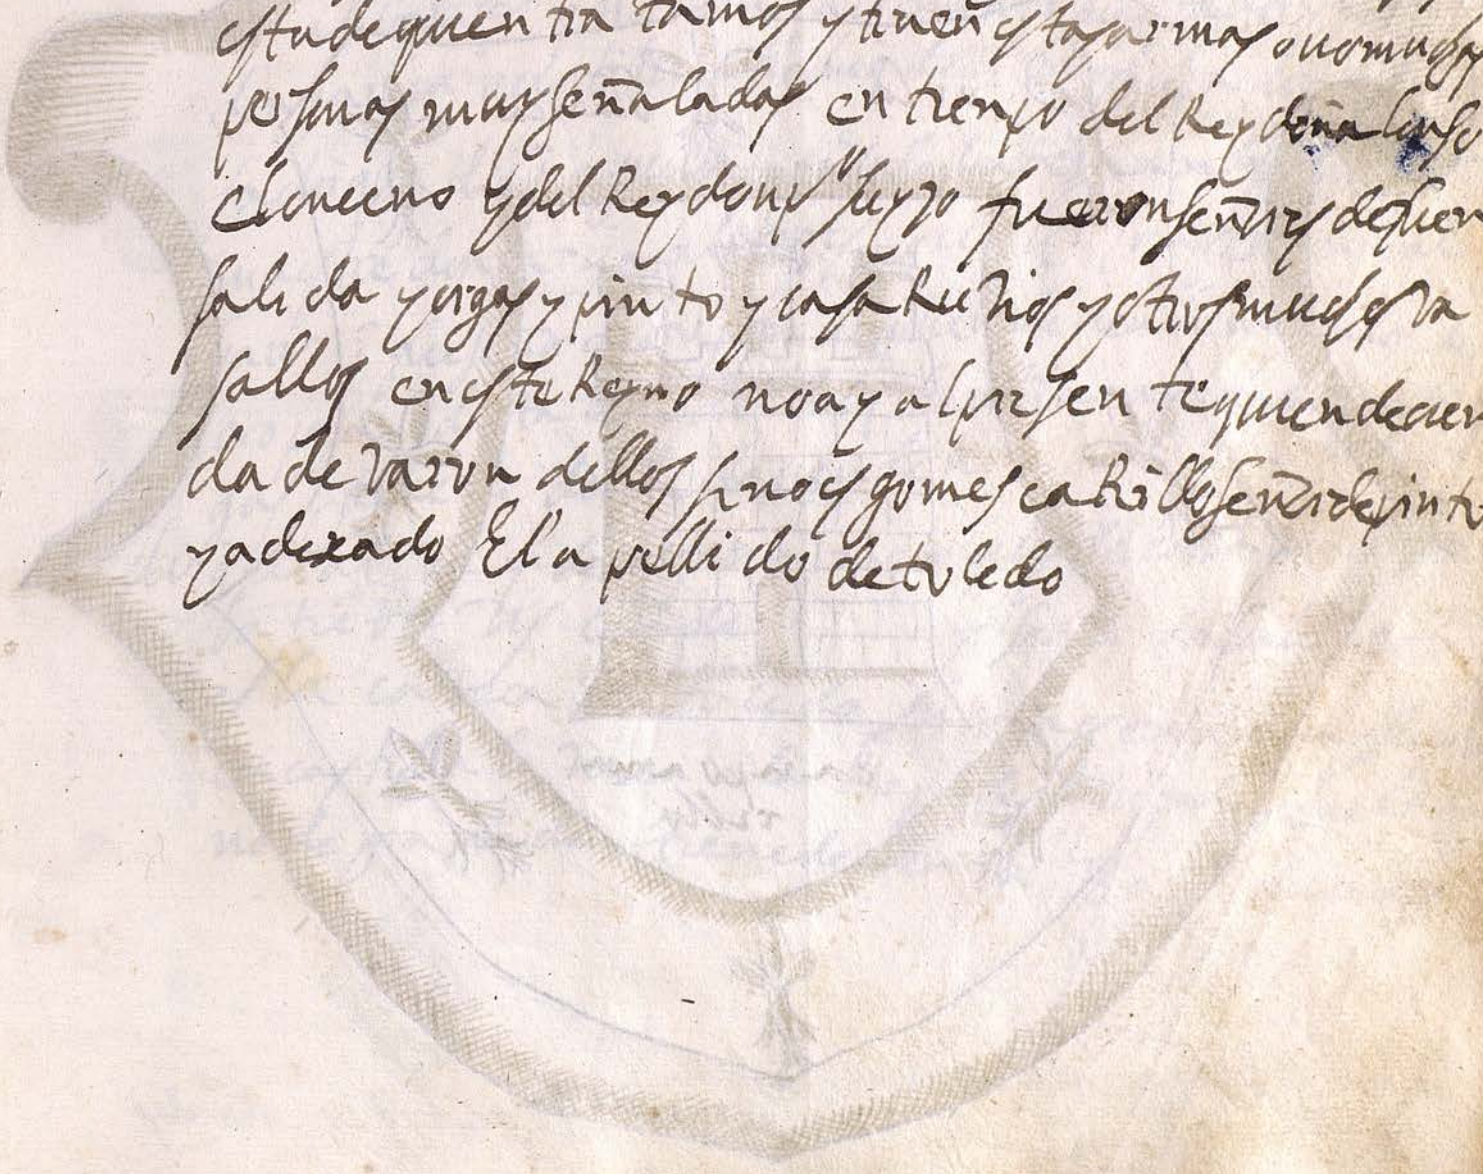 esta de quien tratamos y tienen estas armas ovo muchas
personas muy señaladas en tienpo del Rey don alonso
el onceno y del Rey don pº su yjo fueron señores de fuen
salida y orgas y pinto y casa Ruvios y otros muchos va
sallos en este Reyno no ay al presente quien decien
da de varon dellos sino es gomes caRillo señor de pinto
y a dexado El apellido de toledo